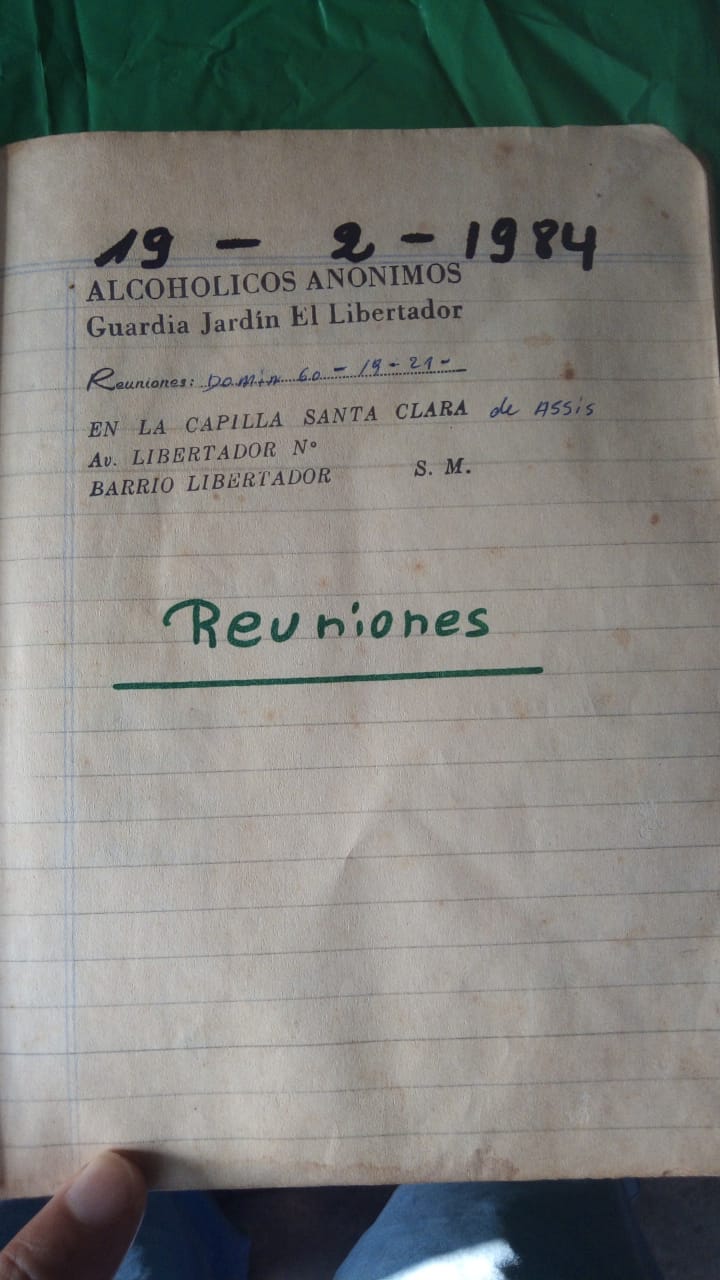 19 - 2 - 1984
ALCOHOLICOS ANONIMOS
Guardia Jardín El Libertador
Reuniones: Domingo - 19 - 21 -
EN LA CAPILLA SANTA CLARA de ASSis
Av. LIBERTADOR Nº
BARRIO LIBERTADOR S. M.
Reuniones